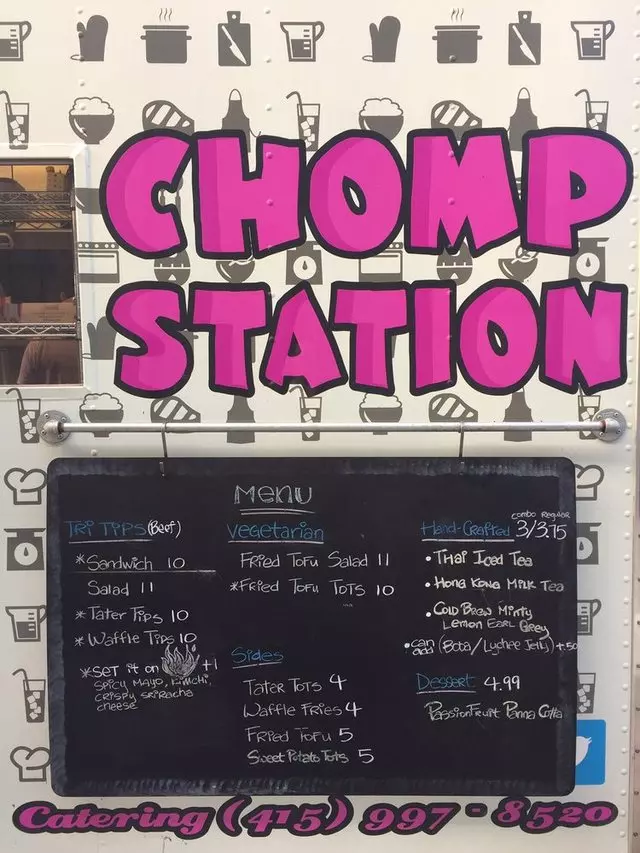 CHOMP
STATION
MENU
TRI TIPS (Beef)
*Sandwich 10
Salad 11
*Tater Tips 10
*Waffle Tips 10
*SET it on +1
SPICY MAYO, KIMCHI,
CRISPY SRIRACHA
cheese
Vegetarian
FRIED TOFU SALAD 11
*FRIED TOFU TOTS 10
Sides
TATER TOTS 4
WAFFLE FRIES 4
FRIED TOFU 5
Sweet Potato Tots 5
combo Regular
Hand-Crafted 3/3.75
• THAI Iced Tea
• HONG KONG MILK TEA
• COLD BREW MINTY
LEMON EARL Grey
• can add (Boba/Lychee Jelly) +50
Dessert 4.99
PASSIONFRUIT PANNA COTTA
Catering (415) 997-8520